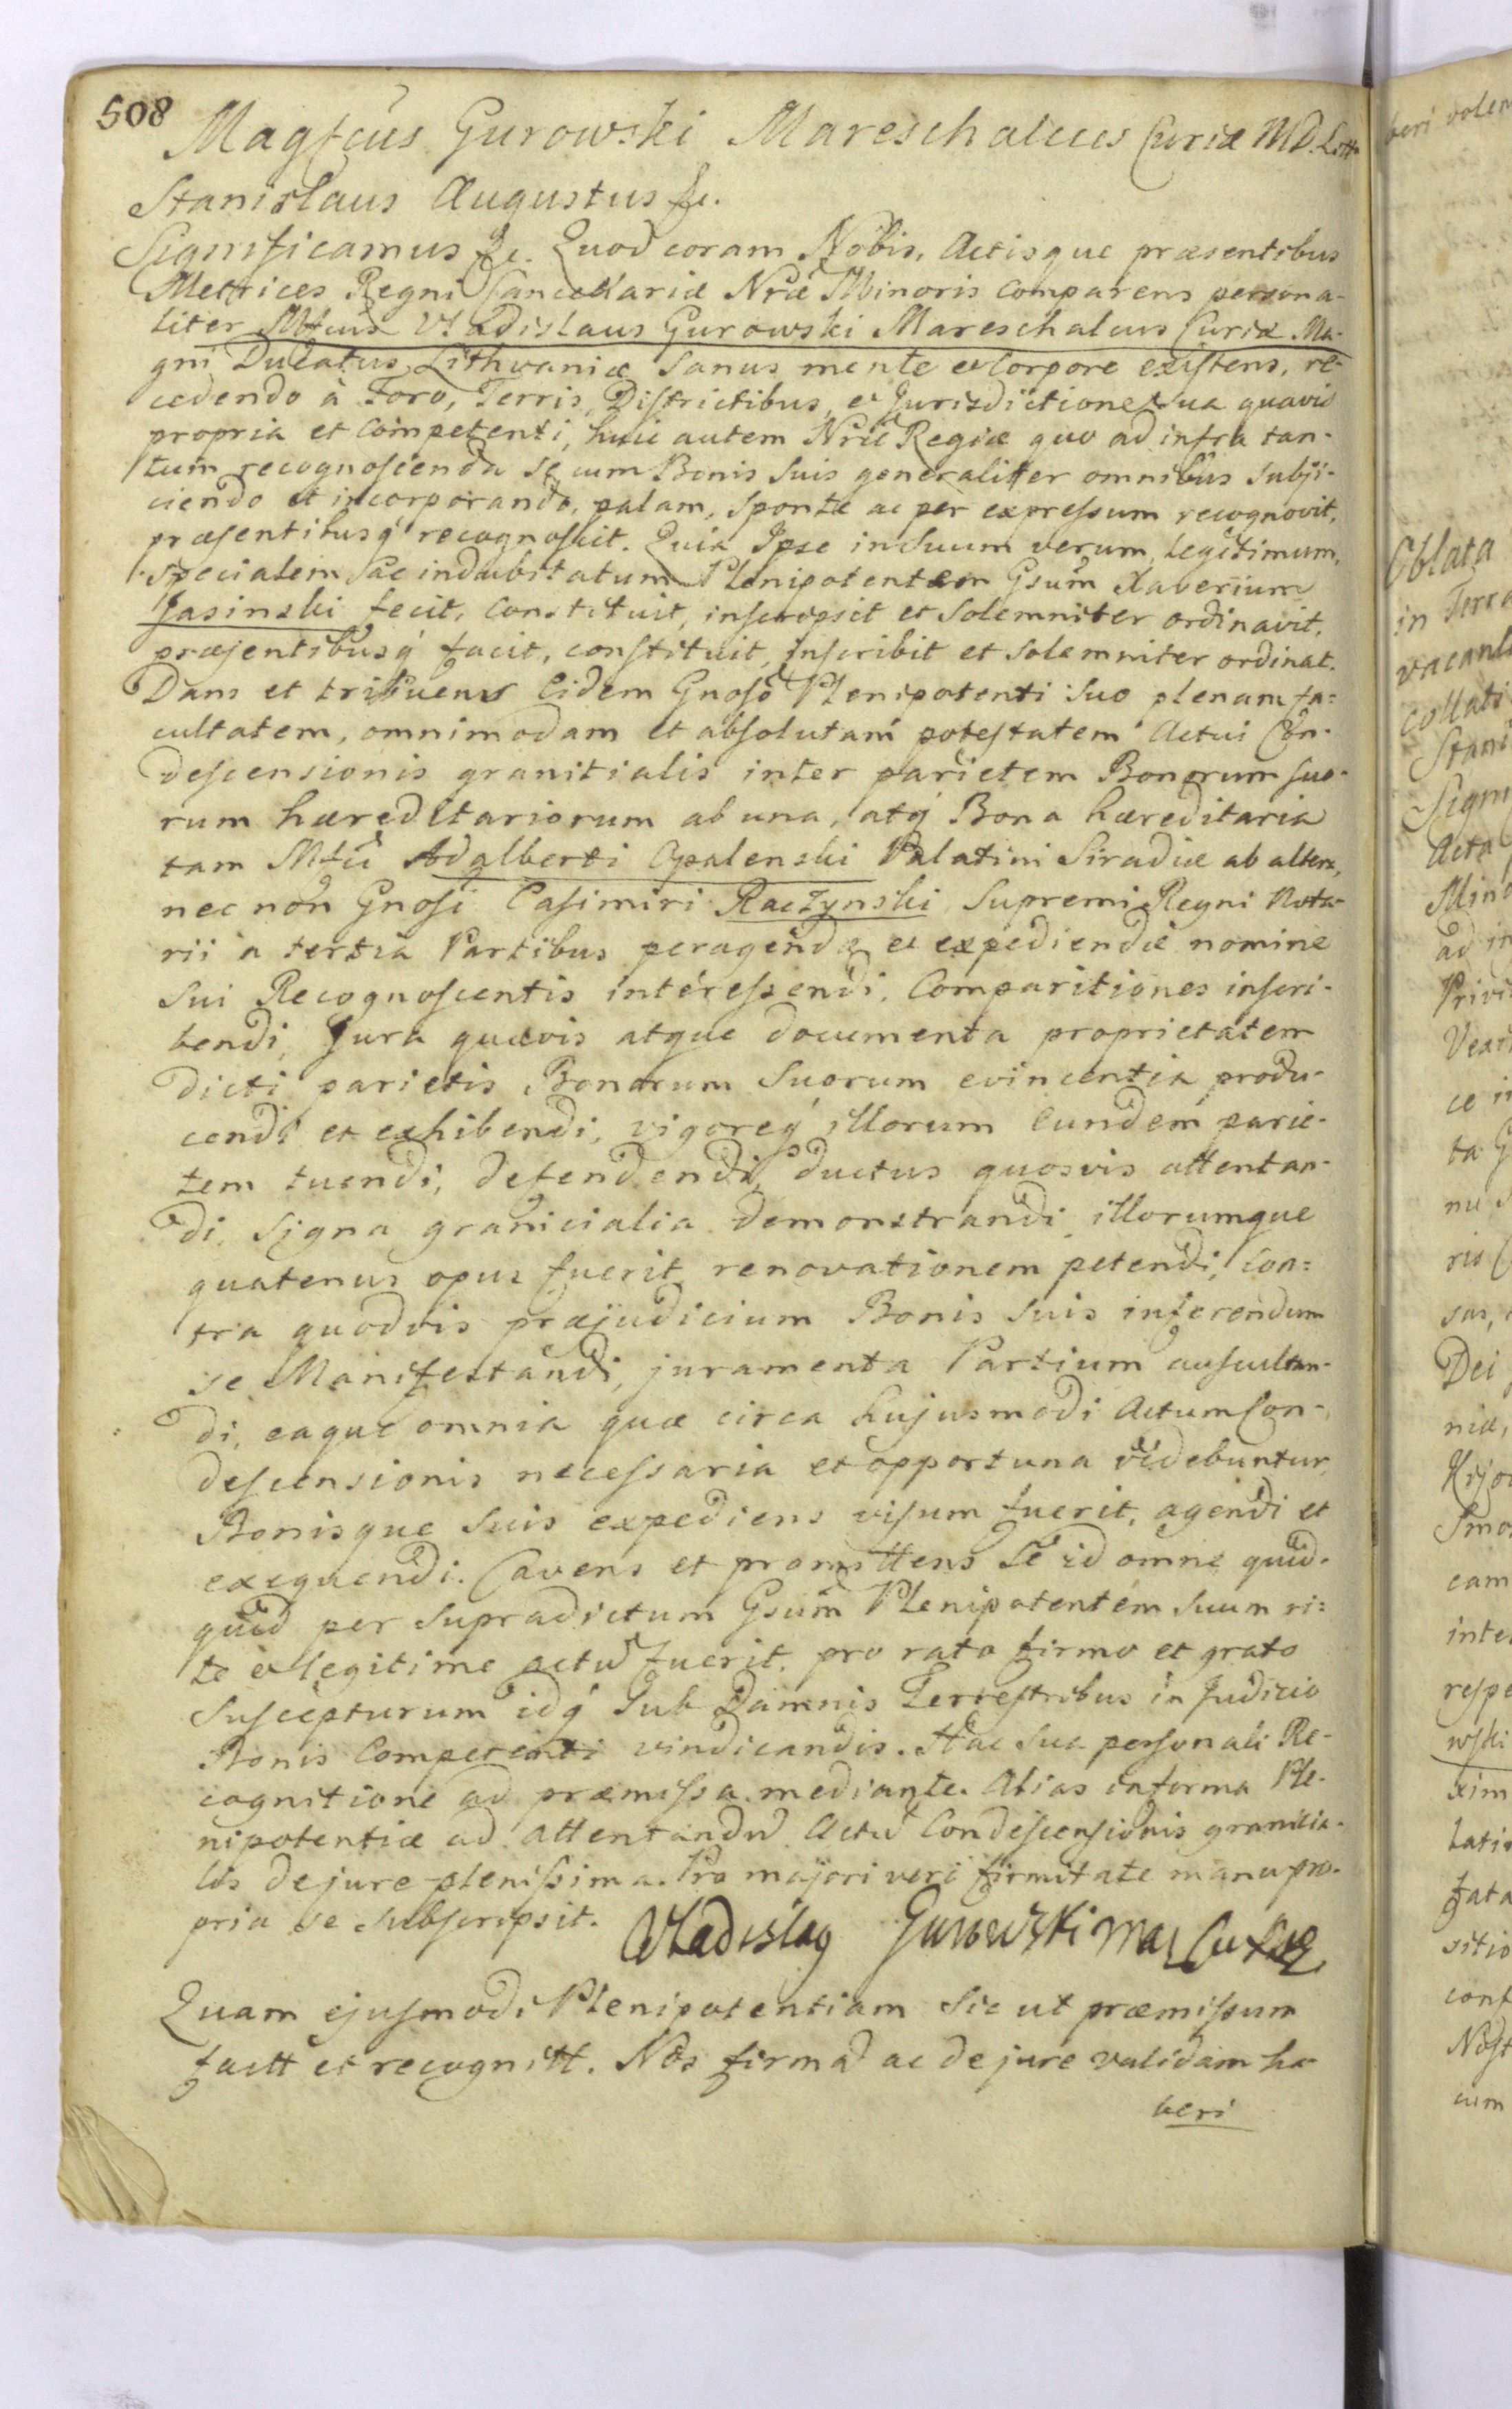 508
Magfcus Gurowski Mareschalcus Curiæ M D. Litt
Stanislaus Augustus &c.
Significamus &c. Quod coram Nobis, Actisque præsentibus
Metrices Regni Cancellariæ Nræ Minoris Comparens persona-
liter Mfcus Vladislaus Gurowski Mareschalcus Curiæ Ma-
gni Ducatus Lithvaniæ Sanus mente et Corpore existens, re-
cedendo à Foro, Terris, Districtibus, et Jurisdictione sua quavis
propria et Competenti, huic autem Nræ Regiæ quo ad infra tan-
tum recognoscenda se cum Bonis suis generaliter omnibus subji-
ciendo et incorporando, palam, sponte ac per expressum recognovit,
præsentibusq́ recognoscit. Quia Ipse in suum verum, legitimum,
specialem ac indubitatum Plenipotentem Gsum Xaverium
Jasinski fecit, Constituit, inscripsit et Solemniter ordinavit,
præsentibusq́ facit, constituit, inscribit et solemniter ordinat.
Dans et tribuens Eidem Gnoso Plenipotenti suo plenam fa=
cultatem, omnimodam et absolutam potestatem Actui Con-
descensionis granitialis inter parietem Bonorum suo-
rum hæreditariorum ab una, atq́ Bona hæreditaria
tam Mfci Adalberti Opalenski Palatini Siradiæ ab altera,
nec non Gnosi Casimiri Raczynski Supremi Regni Nota-
rii a tertia Partibus peragendæ et expediendæ nomine
sui Recognoscentis interessendi, Comparitiones inscri-
bendi, Jura quævis atque documenta proprietatem
dicti parietis Bonorum Suorum evincentia produ-
cendi et exhibendi, vigoreq́ illorum Eundem parie-
tem tuendi, defendendi, ductus quosvis attentan-
di, signa granicialia demonstrandi illorumque
quatenus opus fuerit renovationem petendi, Con=
tra quodvis præjudicium Bonis suis inferendum
se Manifestandi, juramenta Partium auscultan-
di, eaque omnia quæ circa hujusmodi Actum Con-
descensionis necessaria et opportuna videbuntur,
Bonisque suis expediens visum fuerit, agendi et
exequendi. Cavens et promittens Se id omne quid-
quid per supradictum Gsum Plenipotentem suum ri=
te et legitime actũ fuerit, pro rato firmo et grato
suscepturum idq́ sub Damnis Terrestribus in Judicio
Bonis Competenti vindicandis. Hac sua personali Re-
cognitione ad præmissa mediante. Alias in forma Ple-
nipotentiæ ad attentandũ Actũ Condescensionis granicia-
lis de jure plenissima. Pro majori vero firmitate manu pro-
pria se subscripsit.
Vladislaỹ Gurowski Mar
Quam ejusmodi Plenipotentiam Sic ut præmissum
factt et recognitt. Nos firmã ac de jure validam ha-
beri
beri volen
Oblata
in Terra
vacant
Collati
Stani
Sign
Acta
Mino
ad in
Privi
Vext
ce i
ta G
nu
ris
sas,
Dei
niæ,
eam
inte
respe
wski
xim
lati
fata
sitio
conf
Nost
cum